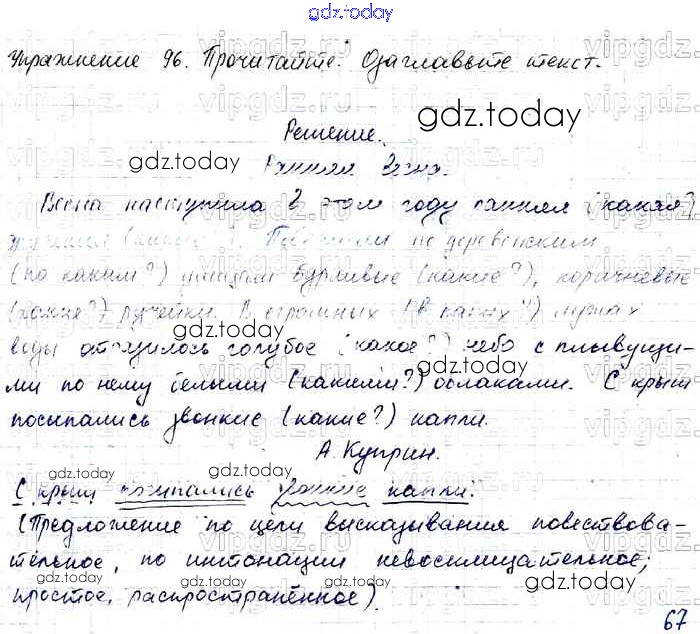 gdz.today
Упражнение 96. Прочитайте. Озаглавьте текст.
Решение.
gdz.today
gdz.today
Ранняя весна.
Весна наступила в этом году ранняя (какая?)
(какая?). Побежали по деревенским
(по каким?) улицам бурливые (какие?), коричневые
(какие?) ручейки. В огромных (в каких?) лужах
gdz.today
воды отразилось голубое (какое?) небо с плывущи-
ми по нему белыми (какими?) облаками. С крыш
посыпались звонкие (какие?) капли.
А. Куприн.
gdz.today
gdz.today
С крыш посыпались звонкие капли.
(Предложение по цели высказывания повествова-
тельное, по интонации невосклицательное;
gdz.today
gdz.today
простое, распространённое).
67